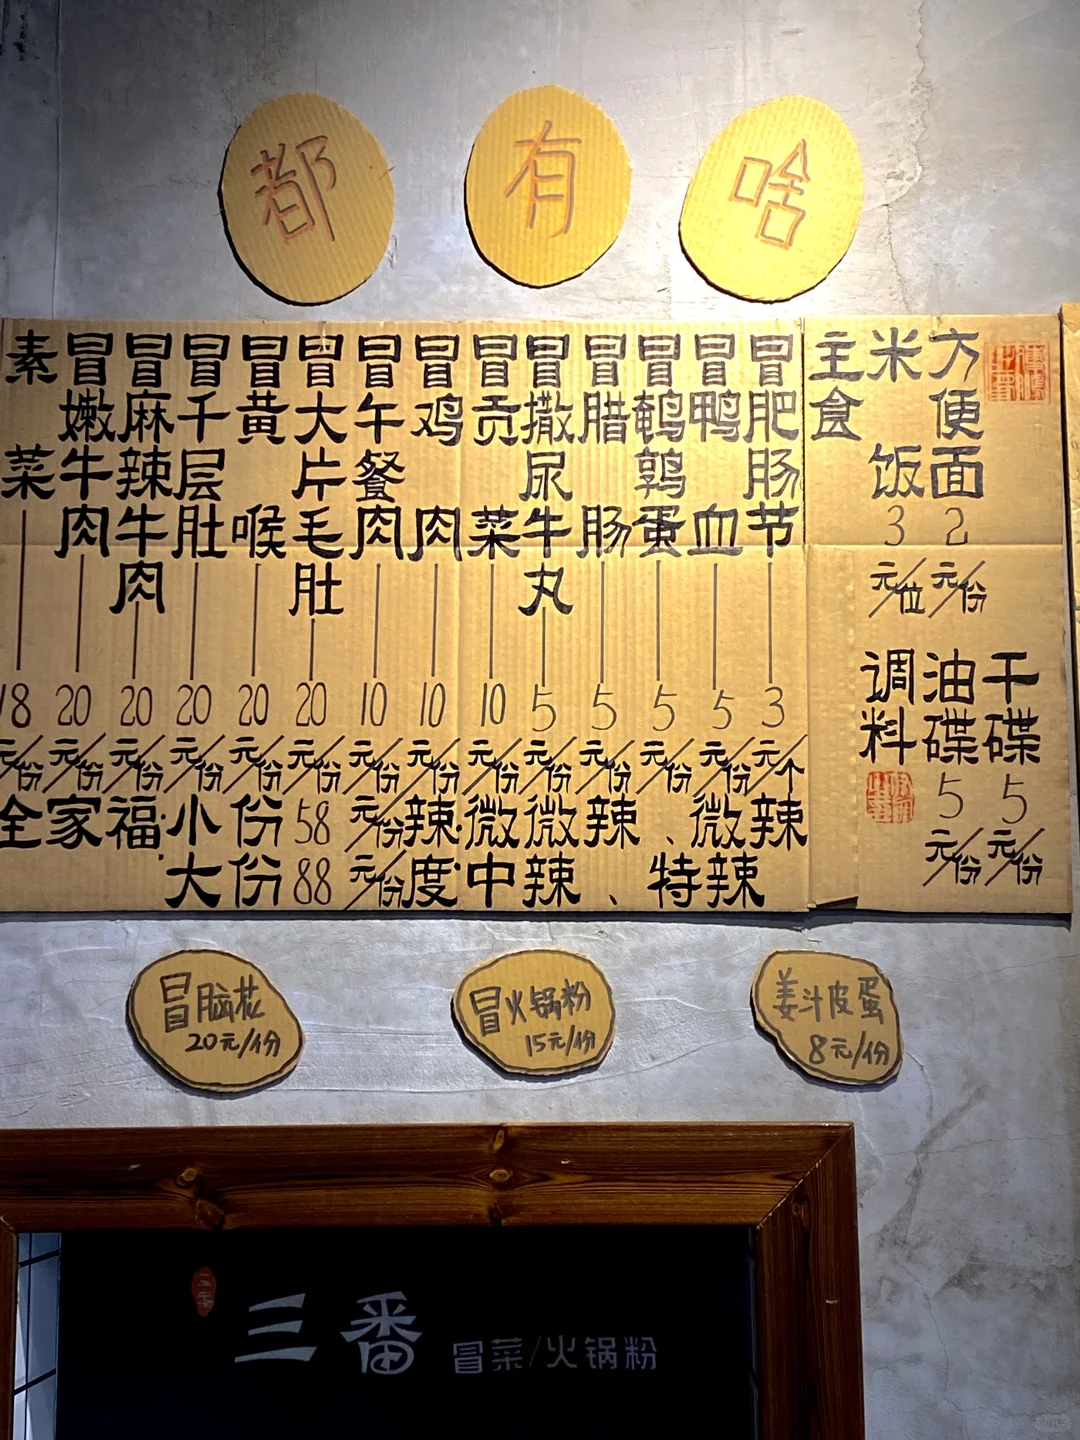 都有啥
素菜 18元/份
冒嫩牛肉 20元/份
冒麻辣牛肉 20元/份
冒千层肚 20元/份
冒黄喉 20元/份
冒大片毛肚 20元/份
冒午餐肉 10元/份
冒鸡肉 10元/份
冒贡菜 10元/份
冒撒尿牛丸 5元/份
冒腊肠 5元/份
冒鹌鹑蛋 5元/份
冒鸭血 5元/份
冒肥肠节 3元/个
全家福:小份58元/份
大份88元/份
辣度:微微辣、微辣
中辣、特辣
主食
米饭 3元/位
方便面 2元/份
调料
油碟 5元/份
干碟 5元/份
冒脑花
20元/份
冒火锅粉
15元/份
姜汁皮蛋
8元/份
三番 冒菜/火锅粉